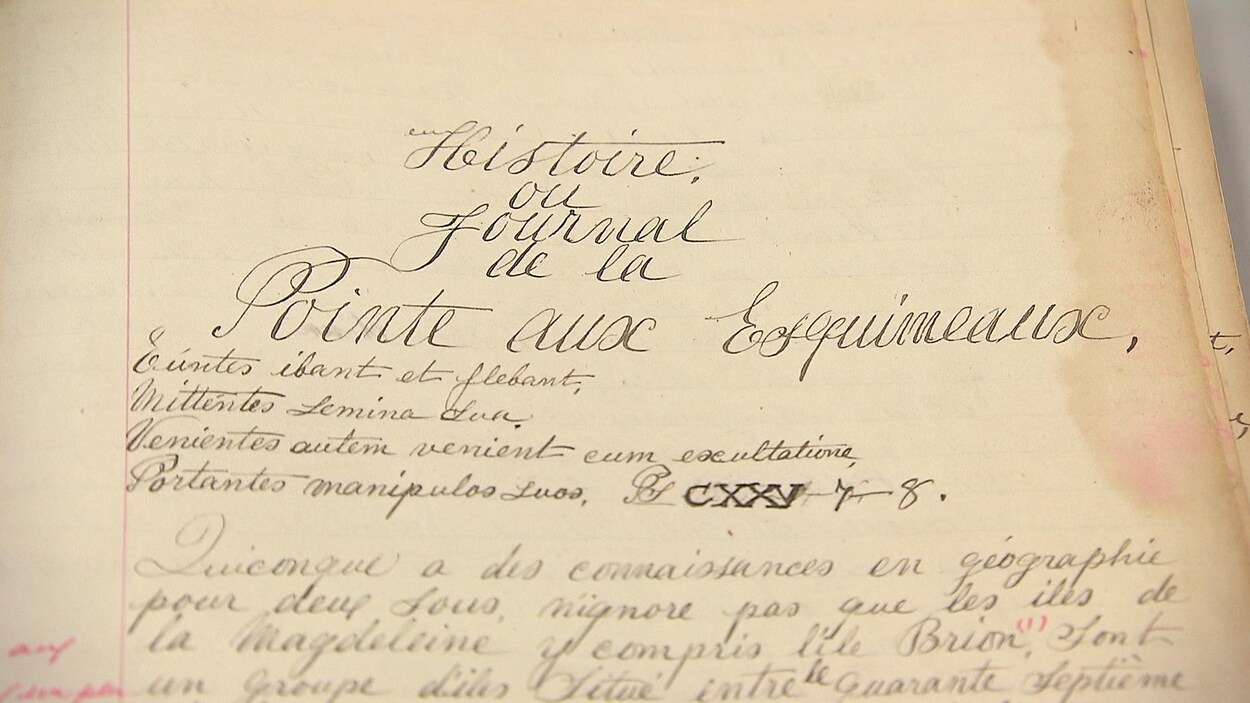 Histoire,
ou
Journal
de la
Pointe aux Esquimeaux,
Euntes ibant et flebant,
Mittentes semina sua.
Venientes autem venient cum excultatione,
Portantes manipulos suos. Ps CXXV 7-8.
Quiconque a des connaissances en géographie
pour deux sous, n'ignore pas que les iles de
la Magdeleine y compris l'ile Brion,(1) sont
un groupe d'iles situé entre le quarante septième